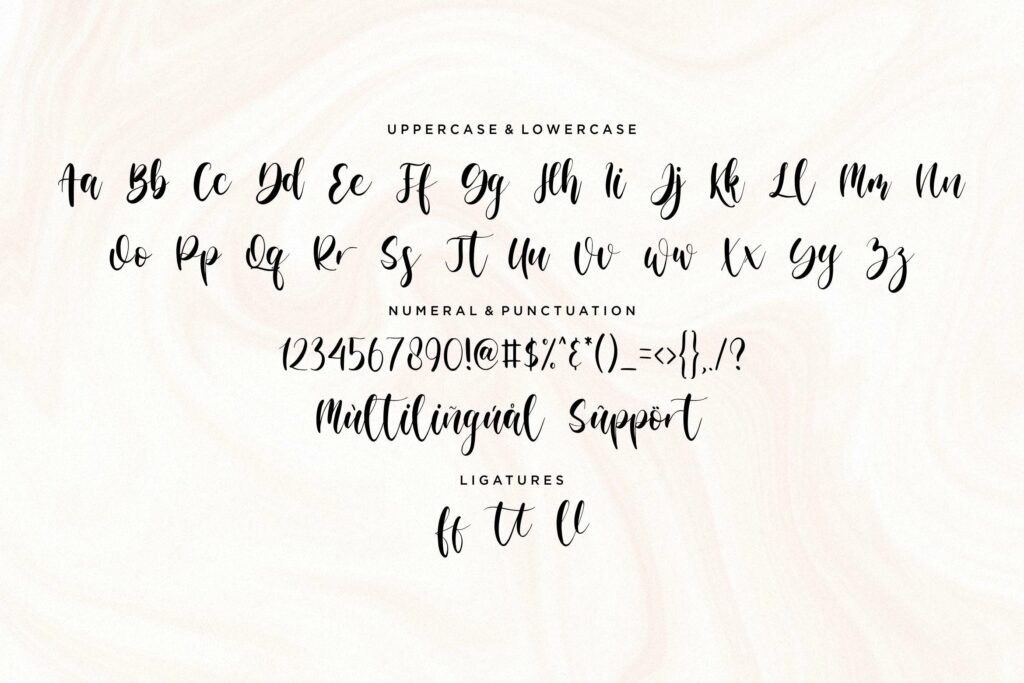 UPPERCASE & LOWERCASE
Aa Bb Cc Dd Ee Ff Gg Hh Ii Jj Kk Ll Mm Nn
Oo Pp Qq Rr Ss Tt Uu Vv Ww Xx Yy Zz
NUMERAL & PUNCTUATION
1234567890!@#$%^&*()_=<>{},./?
Mùltiliñgúål Sûppört
LIGATURES
ff tt ll